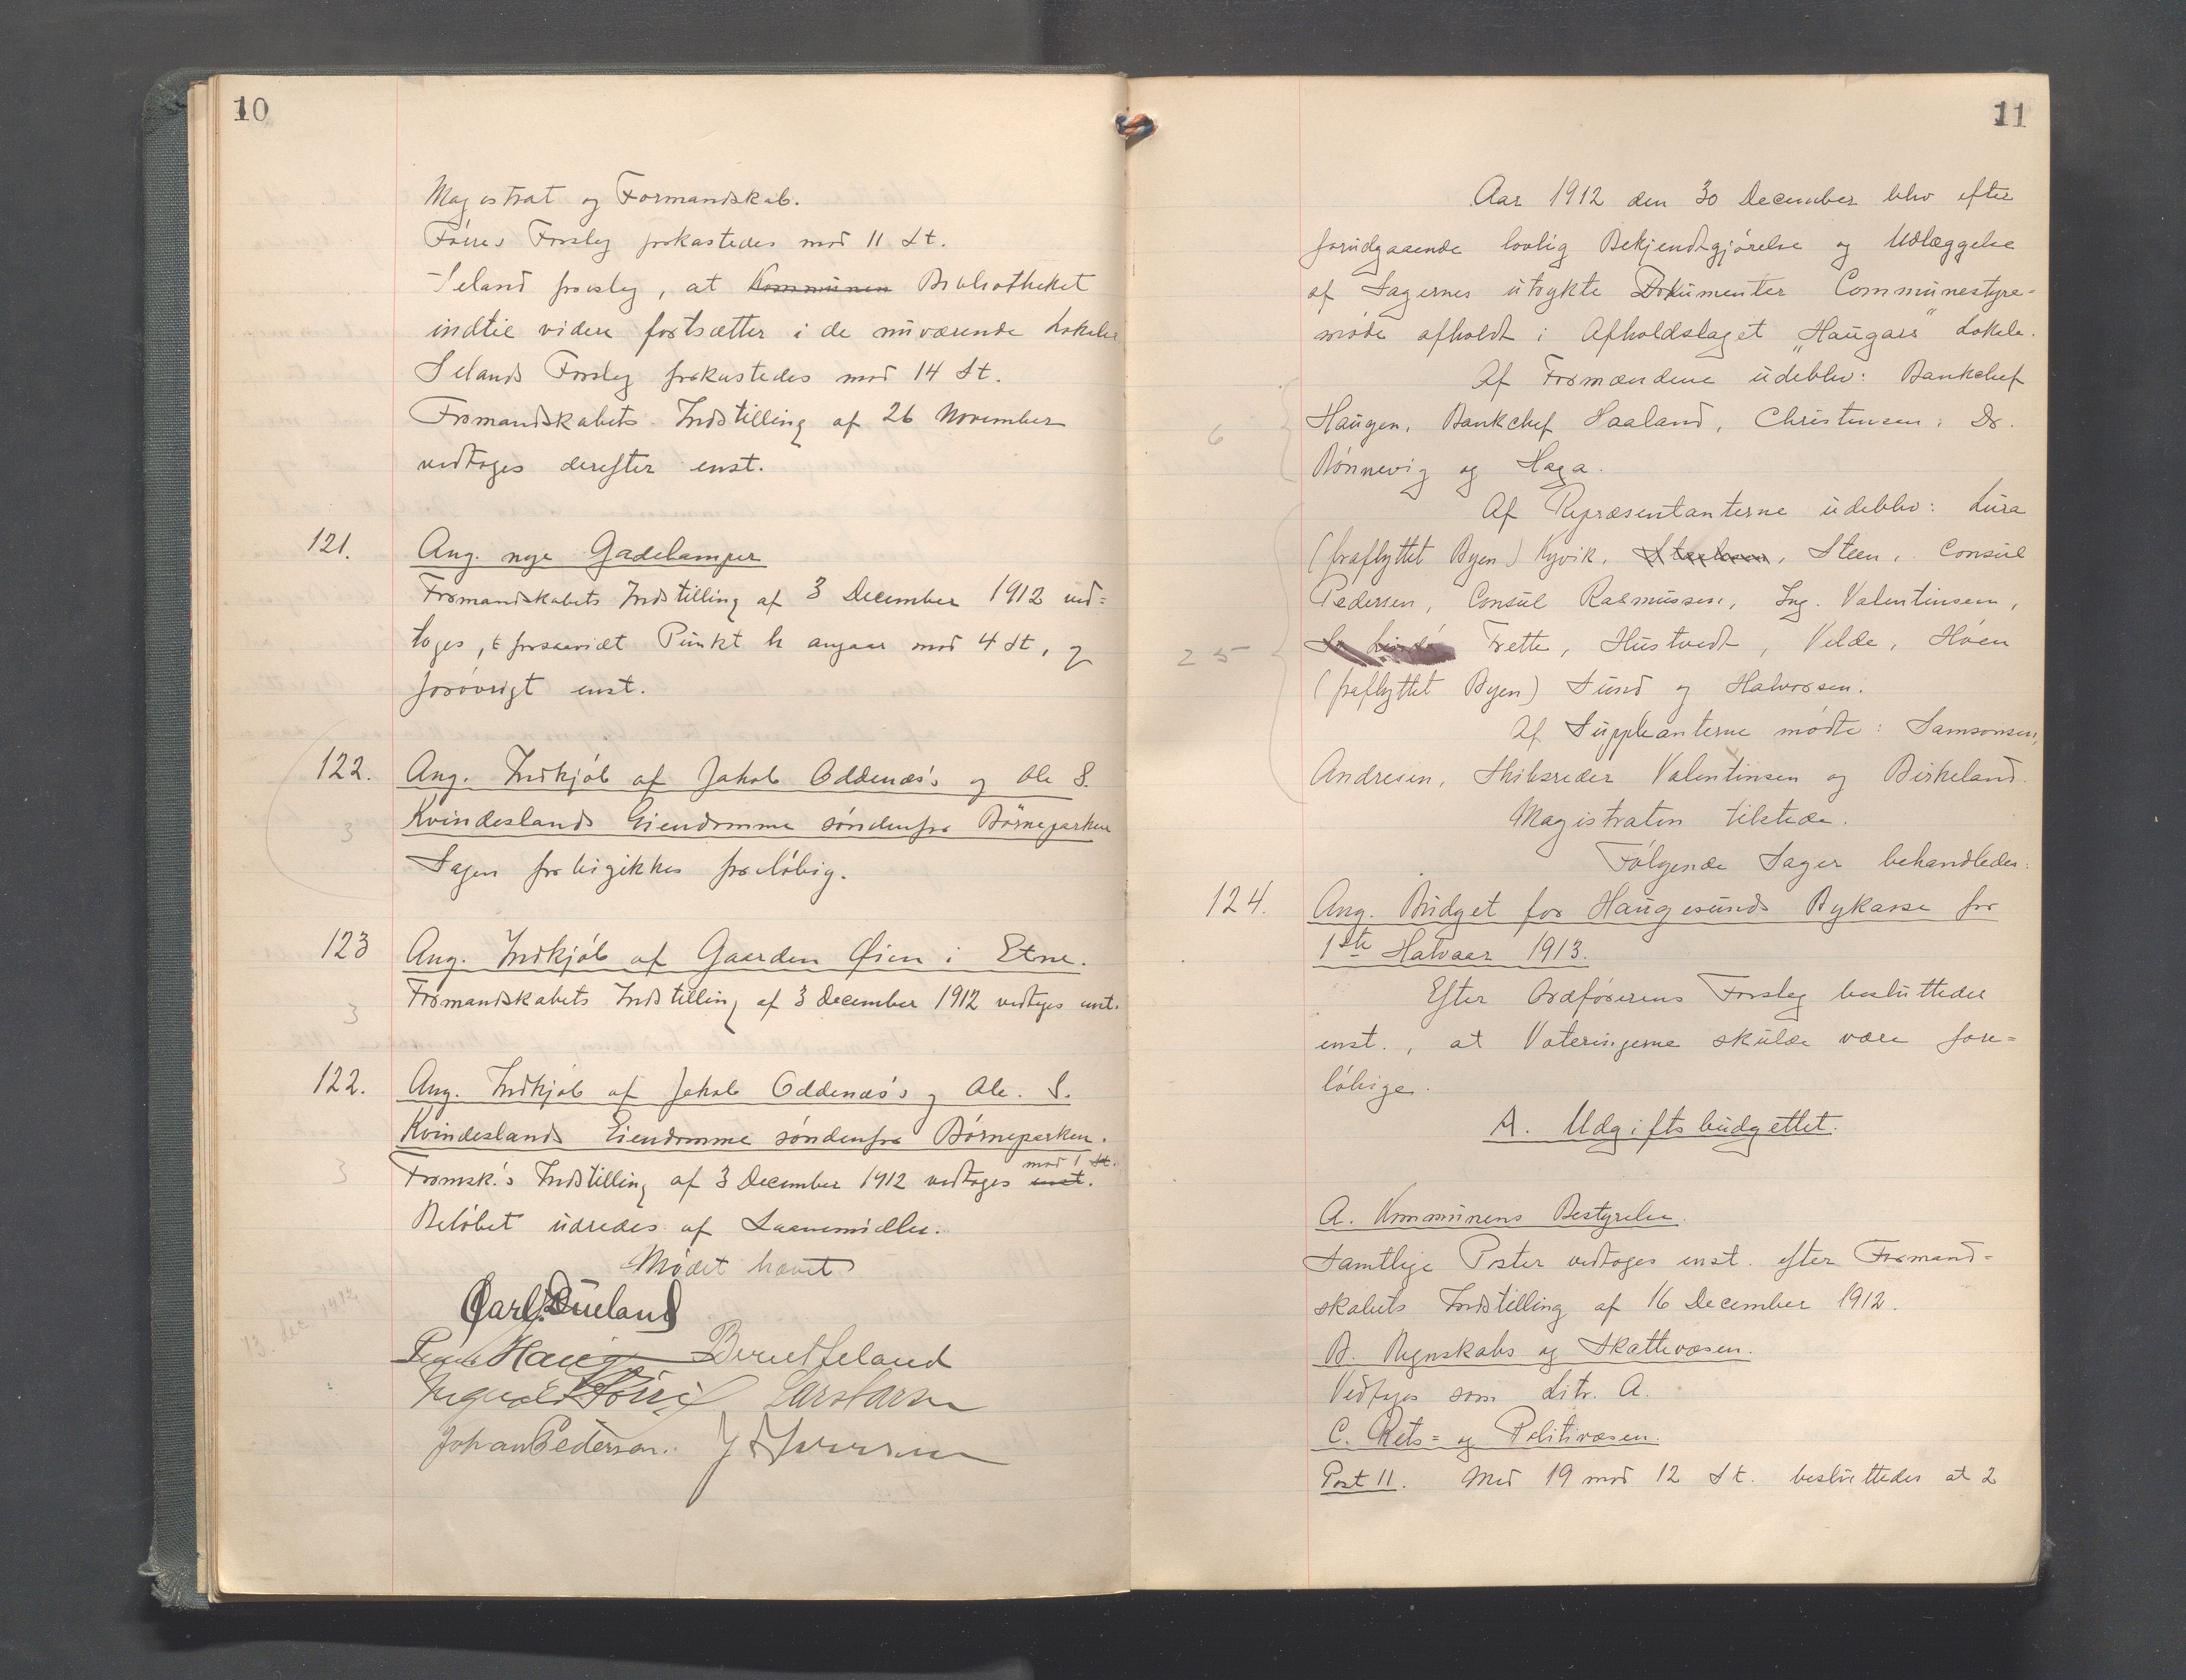 10
Magistrat og Formandskab.
Førres Forslag forkastedes mod 11 St.
Seland foreslog, at Kommunen Bibliotheket
indtil videre fortsætter i de nuværende Lokaler
Selands Forslag forkastedes mod 14 St.
Formandskabets Indstilling af 26 November
vedtoges derefter enst.
121. Ang. nye Gadelamper
Formandskabets Indstilling af 3 December 1912 ved=
toges, forsaavidt Punkt h angaar mod 4 St, og
forøvrigt enst.
122. Ang. Indkjøb af Jakob Oddenæs's og Ole S.
Kvindeslands Eiendomme søndenfor Børneparken
3
Sagen forbigikkes foreløbig.
123 Ang. Indkjøb af Gaarden Øien i Etne.
Formandskabets Indstilling af 3 December 1912 vedtoges enst.
3
122. Ang. Indkjøb af Jakob Oddenæs's og Ole. S.
Kvindeslands Eiendomme søndenfor Børneparken.
mod 1 St.
Formsk.'s Indstilling af 3 December 1912 vedtoges enst.
3
Beløbet udredes af Laanemidler.
Mødet hævet
13. dec 1912
Carl Dueland
Haug Berent Seland
Lars Larsen
Johan Pedersen.
11
Aar 1912 den 30 December blev efter
forudgaaende lovlig Bekjendtgjørelse og Udlæggelse
af Sagernes utrykte Dokumenter Communestyre=
møde afholdt i Afholdslaget „Haugars" Lokale.
Af Formændene udeblev: Bankchef
Haugen, Bankchef Haaland, Christensen, Dr.
6
Rønnevig og Haga.
Af Repræsentanterne udeblev: Lura
(fraflyttet Byen) Kyvik, Steen, Consul
Pedersen, Consul Rasmussen, Ing. Valentinsen,
25
Frette, Hustvedt, Velde, Høen
(fraflyttet Byen) Sund og Halvorsen.
Af Suppleanterne mødte: Samsonsen,
Andresen, Skibsreder Valentinsen og Birkeland.
Magistraten tilstede.
Følgende Sager behandledes:
124. Ang. Budget for Haugesunds Bykasse for
1ste Halvaar 1913.
Efter Ordførerens Forslag besluttedes
enst., at Voteringerne skulde være fore=
løbige.
A. Udgiftsbudgettet.
A. Kommunens Bestyrelse.
Samtlige Poster vedtoges enst. efter Formand=
skabets Indstilling af 16 December 1912.
B. Regnskabs og Skattevæsen.
Vedtoges som Litr. A.
C. Rets= og Politivæsen.
Post 11. Med 19 mod 12 St. besluttedes at 2